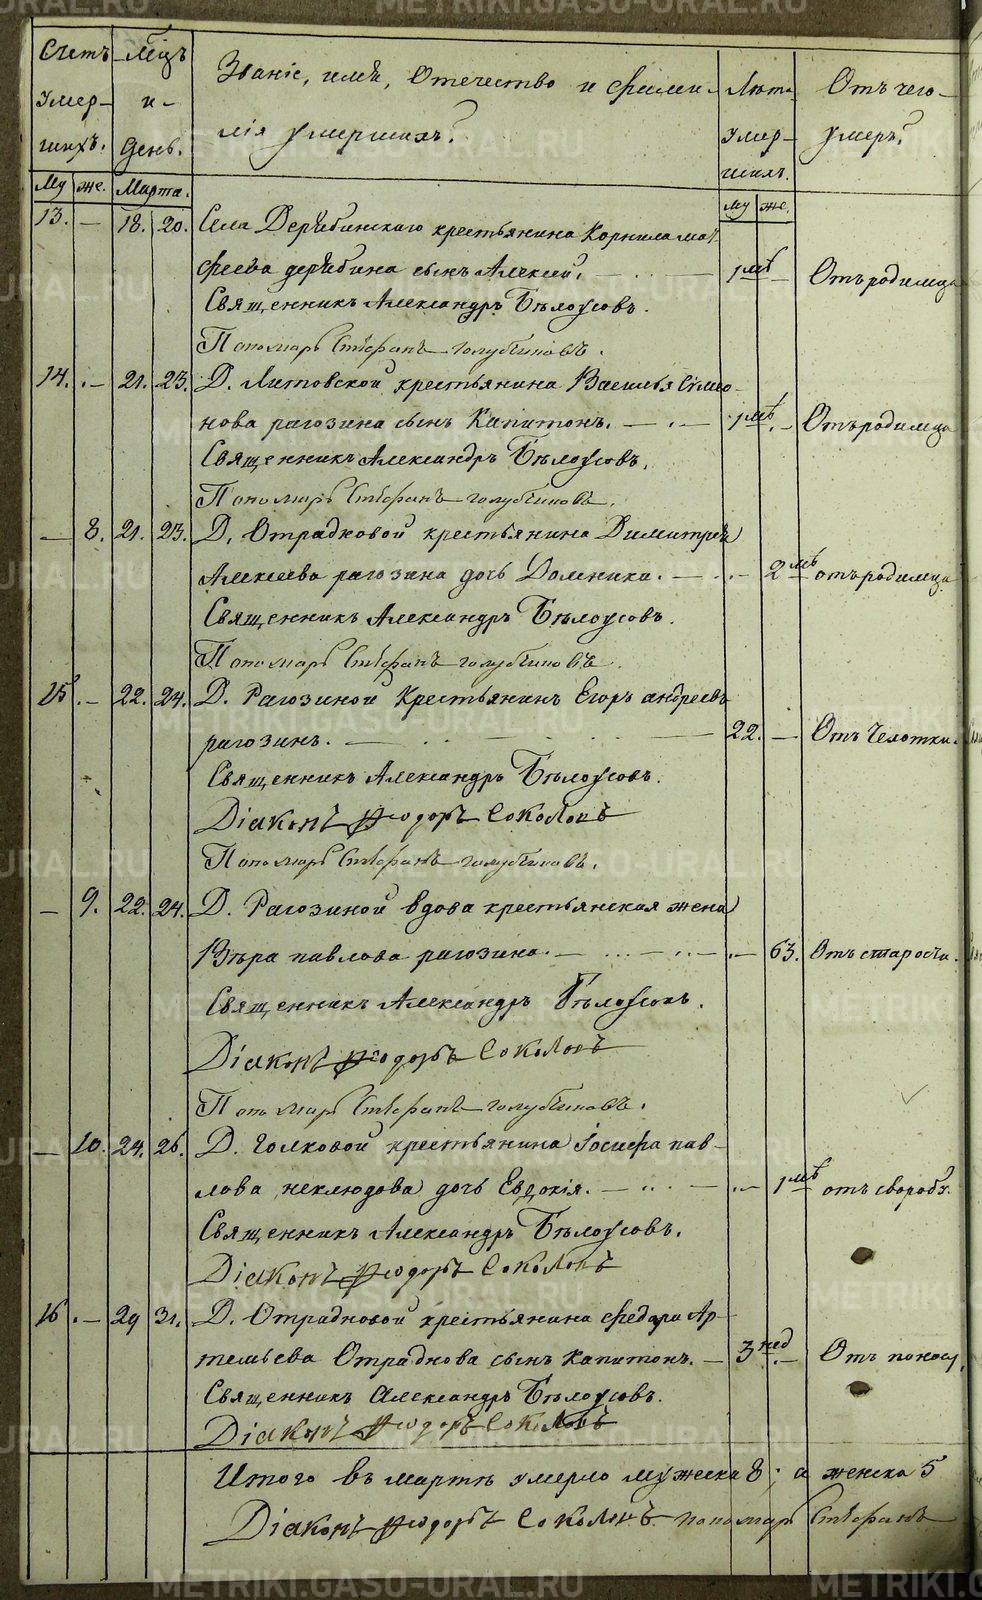 Счетъ умершихъ.
Мѣцъ и день.
Званіе, имя, Отечество и фамилія умершихъ?
Лѣта умершихъ.
Отъ чего умеръ?
Му же. Марта. му же.
13. — 18. 20. Села Дерябинскаго крестьянина Корнила Мат
феева дерябина сынъ Алексей. — 1 мѣ — Отъ родимца
Священникъ Александръ Бѣлоусовъ.
Пономарь Стефанъ голубчиковъ.
14. — 21. 23. Д. Литовской крестьянина Василья Симео
нова рагозина сынъ Капитонъ. — 1 мѣ. — Отъ родимца
Священникъ Александръ Бѣлоусовъ.
Пономарь Стефанъ голубчиковъ.
— 8. 21. 23. Д. Отрадновой крестьянина Димитрея
Алексеева рагозина дочь Домника. — 2 мѣ отъ родимца
Священникъ Александръ Бѣлоусовъ.
Пономарь Стефанъ голубчиковъ.
15. — 22. 24. Д. Рагозиной Крестьянинъ Егоръ андреевъ
рагозинъ. — 22. — Отъ Чехотки.
Священникъ Александръ Бѣлоусовъ.
Діаконъ Ѳеодоръ Соколовъ
Пономарь Стефанъ голубчиковъ.
— 9. 22. 24. Д. Рагозиной вдова крестьянская жена
Вѣра павлова рагозина. — 63. Отъ старости.
Священникъ Александръ Бѣлоусовъ.
Діаконъ Ѳеодоръ Соколовъ
Пономарь Стефанъ голубчиковъ.
— 10. 24. 26. Д. Голковой крестьянина Іосифа пав-
лова неклюдова дочь Евдокія. — 1 мѣ отъ воробх.
Священникъ Александръ Бѣлоусовъ.
Діаконъ Ѳеодоръ Соколовъ
16. — 29 31. Д. Отрадновой крестьянина Федора Ар-
темьева Отраднова сынъ Капитонъ. — 3 нед. — Отъ поноса
Священникъ Александръ Бѣлоусовъ.
Діаконъ Ѳеодоръ Соколовъ
Итого въ мартѣ умерло мужеска 8; а женска 5
Діаконъ Ѳеодоръ Соколовъ пономарь Стефанъ
METRIKI.GASO-URAL.RU